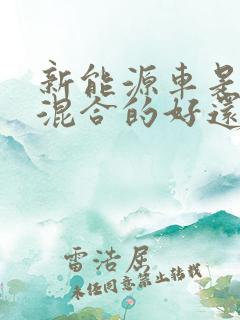 新能源车是
混合的好还
雷浩居
未经同意禁止转载